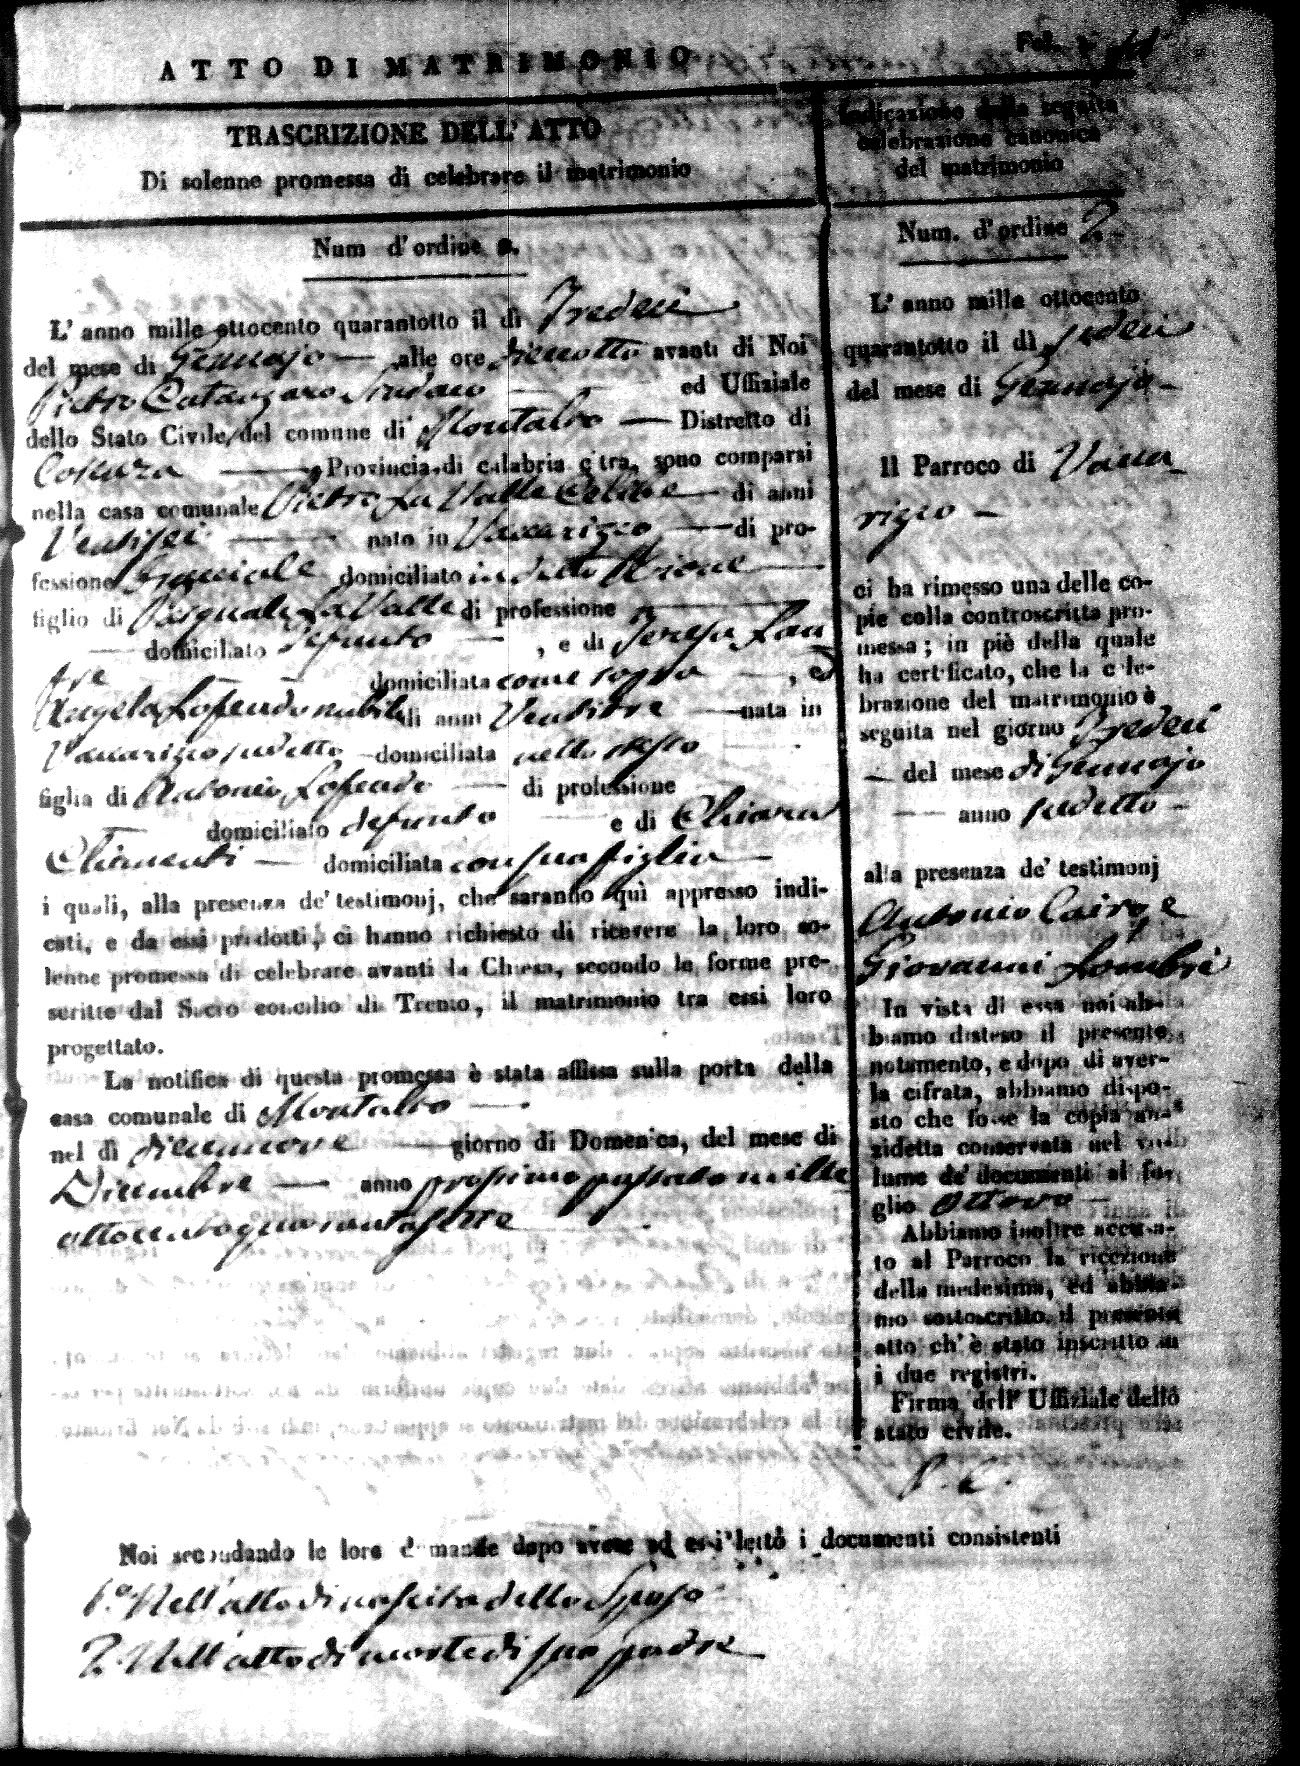 ATTO DI MATRIMONIO
Fol.
TRASCRIZIONE DELL' ATTO
Di solenne promessa di celebrare il matrimonio
Num d' ordine 2.
L' anno mille ottocento quarantotto il dì Tredeci
del mese di Gennajo — alle ore diciotto avanti di Noi
Pietro Catanzaro Sindaco — ed Uffiziale
dello Stato Civile del comune di Montalto — Distretto di
Cosenza — Provincia di calabria citra, sono comparsi
nella casa comunale Pietro La Valle Celibe — di anni
Ventisei — nato in Vaccarizzo — di pro-
fessione Bracciale domiciliato in detto Rione —
figlio di Pasquale La Valle di professione —
— domiciliato defunto — , e di Teresa
domiciliata come sopra — , ed
Angela Lofeudo nubile di anni Ventitre — nata in
Vaccarizzo sudetto — domiciliata nello stesso
figlia di Antonio Lofeudo — di professione
domiciliato defunto — e di Chiara
Chimenti — domiciliata con sua figlia —
i quali, alla presenza de' testimonj, che saranno qui appresso indi-
cati, e da essi prodotti, ci hanno richiesto di ricevere la loro so-
lenne promessa di celebrare avanti la Chiesa, secondo le forme pre-
scritte dal Sacro concilio di Trento, il matrimonio tra essi loro
progettato.
La notifica di questa promessa è stata affissa sulla porta della
casa comunale di Montalto —
nel dì diecinnove — giorno di Domenica, del mese di
Dicembre — anno prossimo passato mille
ottocentoquarantasette
Indicazione della seguita
celebrazione canonica
del matrimonio
Num. d' ordine 2
L' anno mille ottocento
quarantotto il dì sedeci
del mese di Gennajo —
Il Parroco di Vacca
rizzo —
ci ha rimesso una delle co-
pie colla controscritta pro-
messa; in piè della quale
ha certificato, che la cele-
brazione del matrimonio è
seguita nel giorno Tredeci
— del mese di Gennajo
— anno sudetto —
alla presenza de' testimonj
Antonio Cairo e
Giovanni Lombri
In vista di essa noi ab-
biamo disteso il presente
notamento, e dopo di aver-
la cifrata, abbiamo dispo-
sto che fosse la copia an-
zidetta conservata nel vo-
lume de' documenti al fo-
glio ottavo —
Abbiamo inoltre accusa-
to al Parroco la ricezione
della medesima, ed abbia-
mo sottoscritto il presente
atto ch' è stato inscritto su
i due registri.
Firma dell' Uffiziale dello
stato civile.
P. C.
Noi secondando le loro domande dopo avere ad essi letto i documenti consistenti
1.º Nell' atto di nascita dello Sposo
2. Nell' atto di morte di suo padre